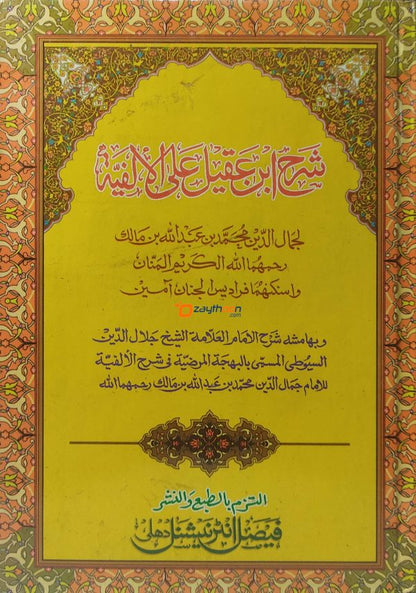 شرح ابن عقيل على الألفية
لجمال الدين محمد بن عبد الله بن مالك
رحمهما الله الكريم المنان
واسكنهما فراديس الجنان آمين
zaythoon.com
وبهامشه شرح الامام العلامة الشيخ جلال الدين
السيوطى المسمى بالبهجة المرضية فى شرح الألفية
للامام جمال الدين محمد بن عبد الله بن مالك رحمهما الله
التزم بالطبع والنشر
فيصل انٹرنيشنل دهلى